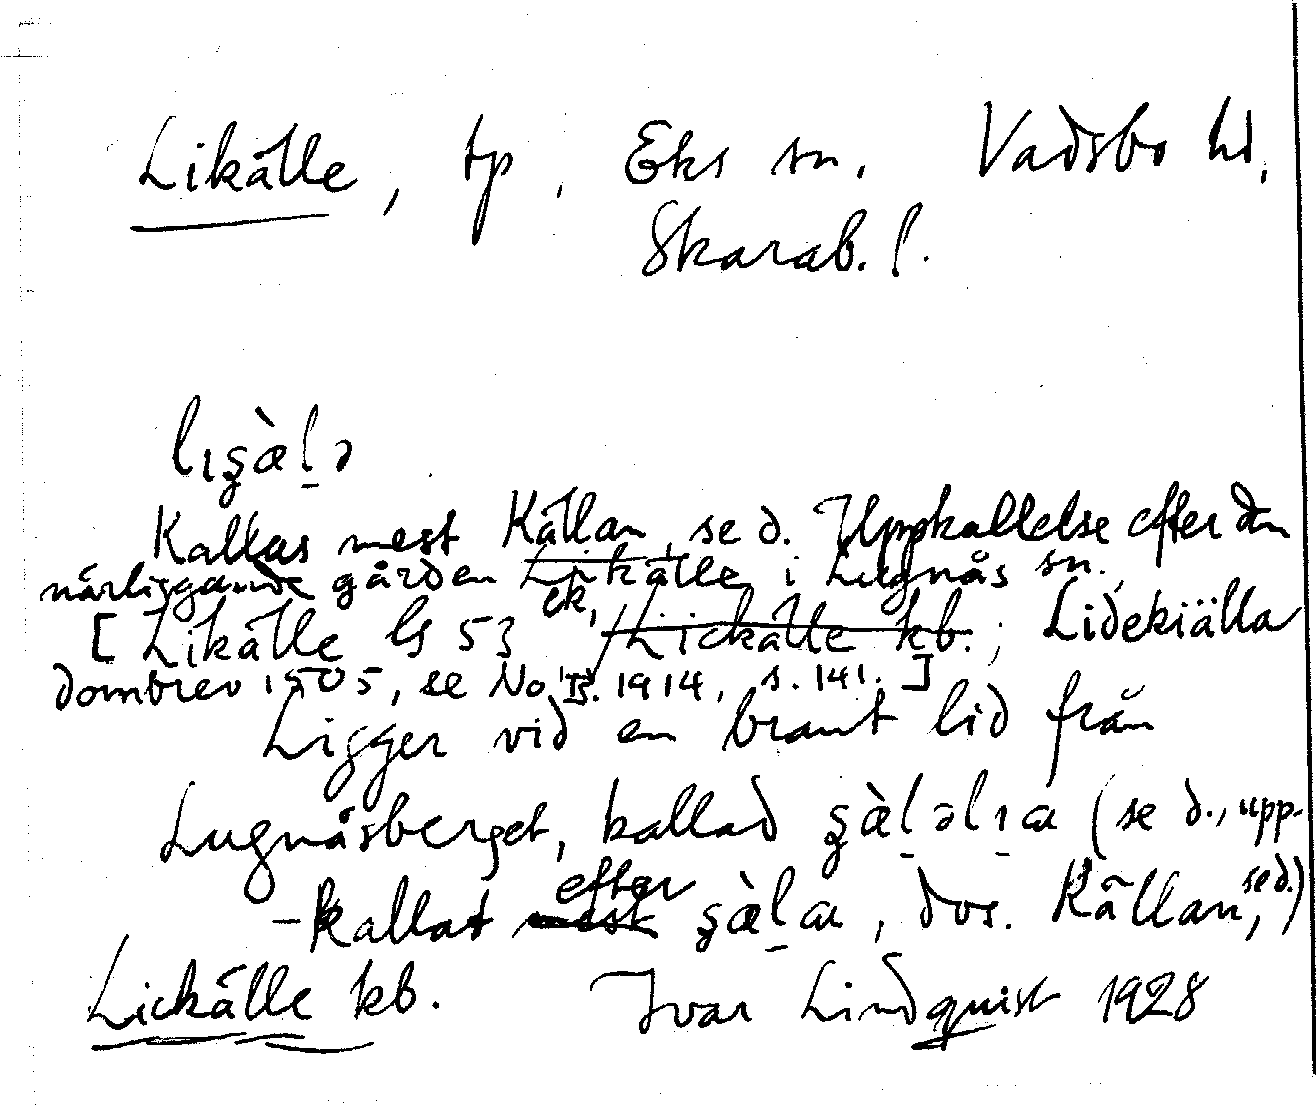 Likälle, tp, Eks sn. Vadsbo hd.
Skarab. l.
lıʂàl̠ə
Kallas mest Källan, se d. Uppkallelse efter den
närliggande gården Likälle i Lugnås sn.
[Likälle GS 53 ek, Lickälle kb.; Lidekiälla
dombrev 1505, se NoB. 1914, s. 141.]
Ligger vid en brant lid från
Lugnåsberget, kallad ʂàl̠əlıa (se d., upp-
-kallat efter ʂàl̠a, dvs. Källan, se d.)
Lickälle kb. Ivar Lindquist 1928